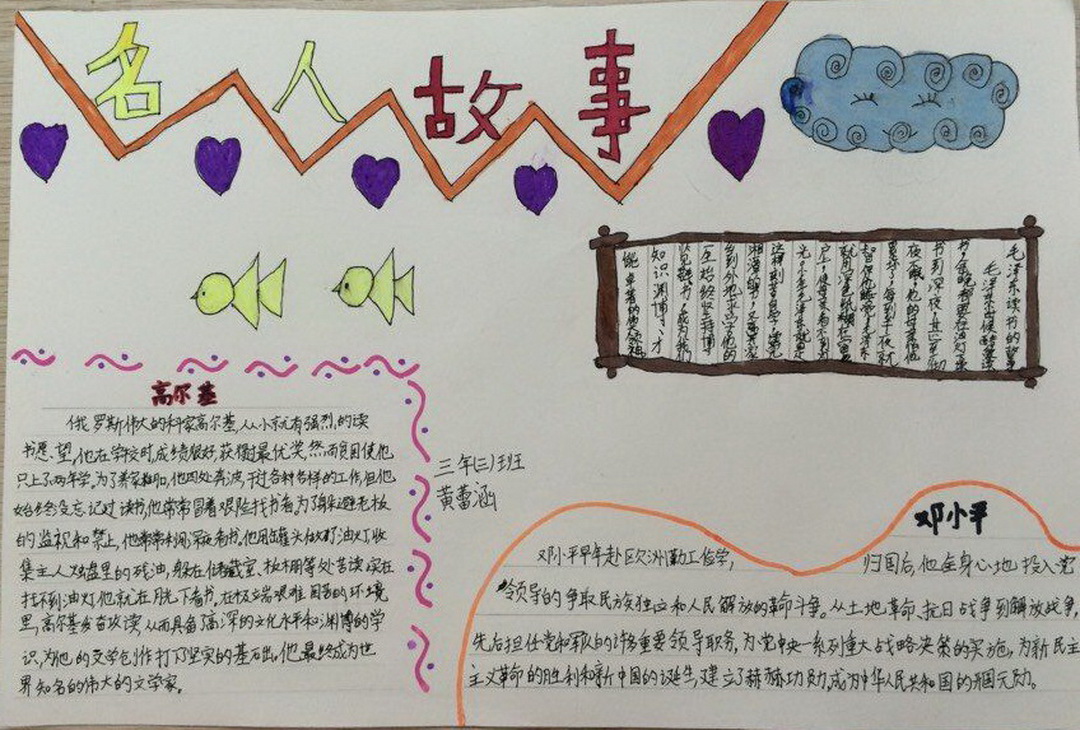 名人故事
毛泽东读书的故事
毛泽东小时候酷爱读
书，每晚都要在油灯下
书到深夜，甚至彻
夜不眠，他的母亲怕他
知识渊博、才
能卓著的伟大领袖
高尔基
俄罗斯伟大的科家高尔基，从小就有强烈的读
书愿望，他在学校时，成绩很好，获得过最优奖，然而贫困使他
只上了两年学。为了养家糊口，他四处奔波，干过各种各样的工作，但他
始终没忘记过读书，他常常冒着艰险找书看。为了躲避老板
的监视和禁止，他常常利用深夜看书。他用罐头做成了油灯，收
集主人烛盘里的残油，躲在储藏室、板棚等处苦读，实在
找不到油灯，他就在月光下看书。在极端艰难困苦的环境
里，高尔基发奋攻读，从而具备了高深的文化水平和渊博的学
识，为他的文学创作打了坚实的基础。他最终成为世
界知名的伟大的文学家。
三年(三)班
黄蕾涵
邓小平
邓小平早年赴欧洲勤工俭学， 归国后，他全身心地投入党
领导的争取民族独立和人民解放的革命斗争。从土地革命、抗日战争到解放战争，
先后担任党和军队的许多重要领导职务，为党中央一系列重大战略决策的实施，为新民主
主义革命的胜利和新中国的诞生，建立了赫赫功勋，成为中华人民共和国的开国元勋。